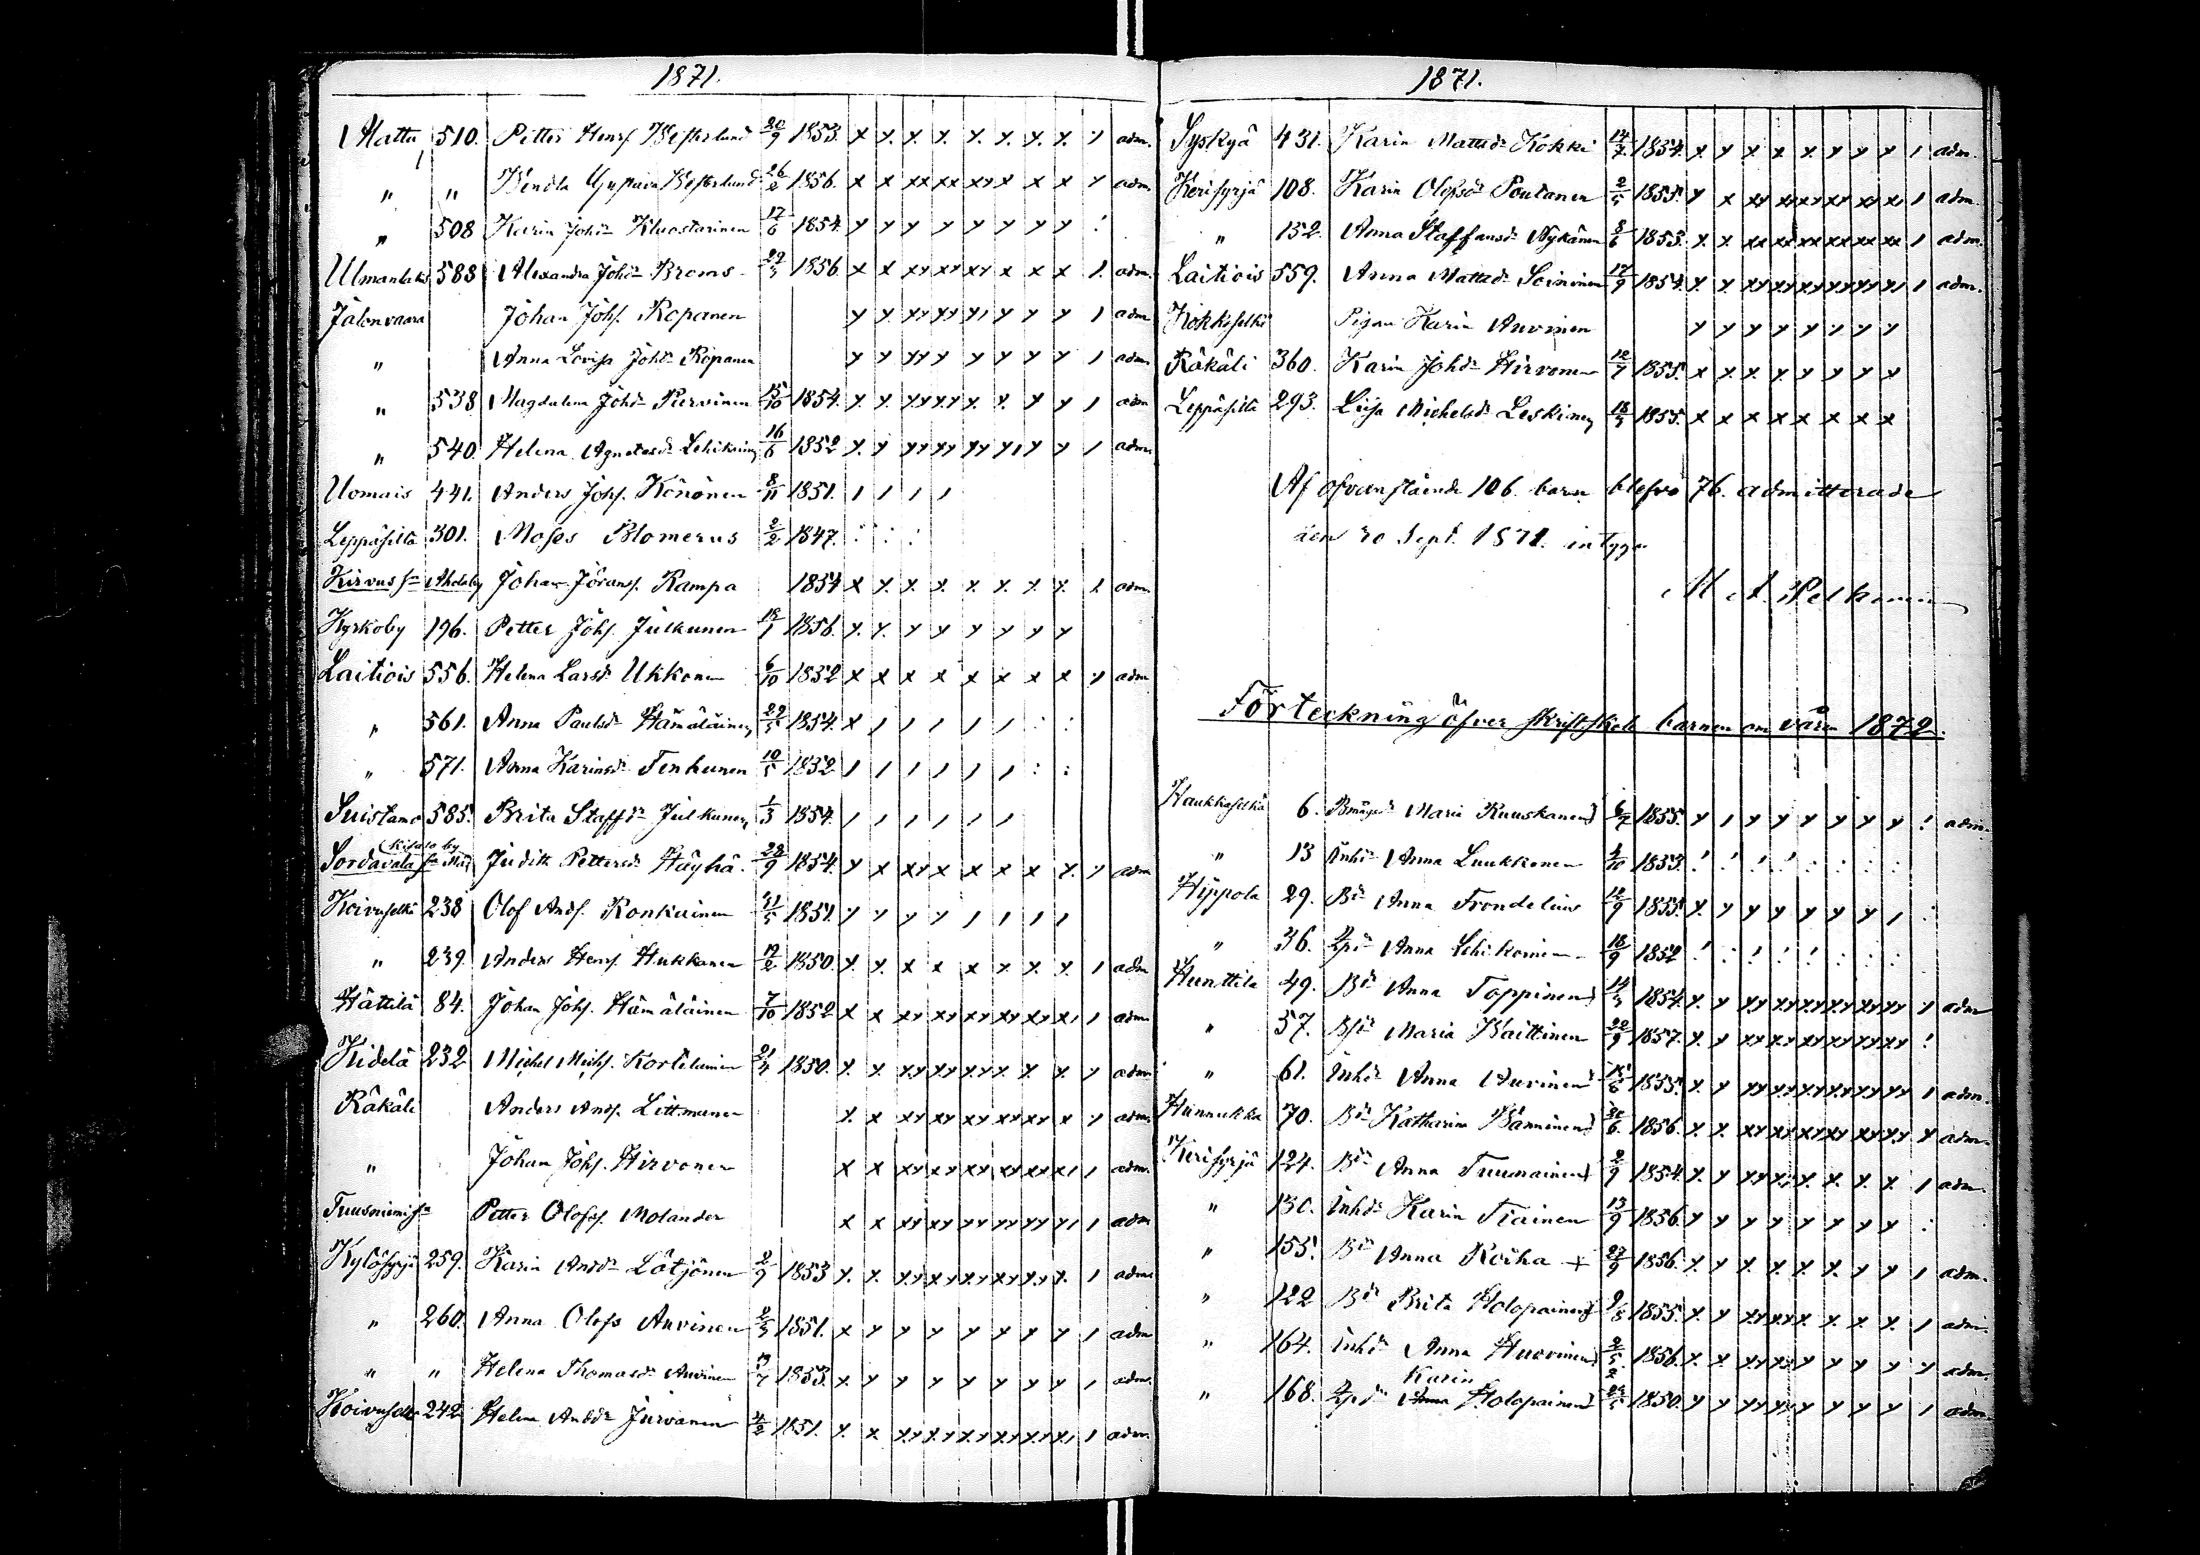 1871.
Mattu 510. Petter Henrs. Westerlund 20/9 1853. x x x x x x x x / adm.
" " Wendla Gustava Westerlund 26/2 1856. x x xx xx xx x x x x adm.
" 508 Karin Johs dr Kluostarinen 17/6 1854. y y y y y y y y :
Ulmanlaks 588 Alexandra Johdr Broms 1856 x x xy xy xy x x x 1. adm.
Jalonvaara Johan Johs. Ropanen y y xy xy xy y y y 1 adm
" Anna Lovisa Johdr Ropanen y y xy y y y y y 1 adm
" 538 Magdalena Johdr Purvinen 15/10 1854. y y xy xy x x y y 1 adm
" 540. Helena Agnetasdr Lehikoinen 16/6 1852 y y xy xy xy xy y y 1 adm
Uomais 441. Anders Johs. Könönen 8/11 1851. / / / /
Leppäsilta 301. Moses Blomerus 2/2 1847. : : :
Kirvus sn Aholaby Johan Göranss. Rampa 1854 x x x x x x x x 1 adm.
Kyrkoby 196. Petter Johs. Julkunen 1856. y y y y y y y y
Laitiois 556. Helena Larsdr Ukkonen 6/10 1852 x x x x x x x x y adm
" 561. Anna Paulsdr Hämäläinen 29/5 1854. x / / / / / : :
" 571. Anna Karinsdr Tenhunen 10/5 1852 / / / / / / : :
Suistamo 585. Brita Staffdr Julkunen 1/3 1854. / / / / / /
Kitala by
Sordavala sn Judith Pettersdr Häyhä. 28/9 1854. y x xy x x x x y y adm
Koivuselkä 238 Olof Ands. Ronkainen 1851. y y y y / / / /
" 239. Anders Henrs. Hukkanen 19/2 1850. y y x x x x x x 1 adm
Hättilä 84. Johan Johs. Hämäläinen 7/10 1852 x x xy xy xy xy xy x/ 1 adm
Kidelä 232 Michel Michs. Kortelainen 1850. y y xy xy xy x x x y adm
Räkäli Anders Ands. Littmanen x x xy xy xy xy xy x y adm
" Johan Johs. Hirvonen x x xy xy xy xy xy x/ 1 adm.
Tuusniemi sn Petter Olofss. Molander x x xy xy xy xy xy y/ 1 adm
Kylösyrjä 259. Karin Andsdr Lötjönen 2/9 1853 y y xy xy xy xy xy x 1 adm
" 260. Anna Olofs Auvinen 2/3 1851. x y y y y y y y 1 adm
" " Helena Thomasdr Auvinen 1853. x y y y y y y y 1 adm.
Koivuselkä 242 Helena Andsdr Jurvanen 1851. y x xy xy xy xy xy x/ 1 adm.
1871.
Syskyä 431. Karin Mattsdr Kokki 1854. x y x x x y y y 1 adm.
Kerisyrjä 108. Karin Olofsdr Poutanen 2/5 1855. y x xy xy xy xy xy x/ 1 adm.
" 152. Anna Staffansdr Nykänen 8/6 1853. x x xx xx xx xx xx xx 1 adm.
Laitiois 559. Anna Mattsdr Soininen 17/9 1854. y y xy xy xy xy xy x/ 1 adm.
Kokkoselkä Pigan Karin Auvinen y y y y y y y y
Räkäli 360. Karin Johdr Hirvonen 1855. x x x x y y y x
Leppäsilta 293. Lisa Michelsdr Leskinen 1855. x x x x x x x x
Af ofvanstående 106. barn blefvo 76. admitterade
den 30 Sept. 1871. intygar
Förteckning öfver skriftskole barnen om våren 1872.
Haukkaselkä 6. Maria Ruuskanen 1855. y / y y y y y y ! adm.
" 13 Inhdr Anna Luukkonen 1853. ! ! ! ! : : : :
Hippola 29. Bdr Anna Frondelius 12/9 1855. y y y y y y y / :
" 36. Anna Lehikoinen 18/9 1852 ! : ! ! ! : : :
Hunttila 49. Bdr Anna Toppinen 14/3 1854. x y xy xy xy xy xy xy y adm
" 57. Maria Waittinen 22/9 1857. x y xy xy xy xy xy xy !
" 61. Inhdr Anna Auvinen 1855. x y xy xy xy xy xy xy 1 adm.
Hannukka 70. Bdr Katharina Wänninen 30/6 1856. x x xy xy xy xy xy xy y adm.
Kerisyrjä 124. Bdr Anna Tuunainen 2/9 1854. y y xy xy x x x x 1 adm.
" 130. Inhdr Karin Tiainen 13/9 1856. y y y y y y y y :
" 155. Bdr Anna Roiha + 23/9 1856. x x x x x x y y 1 adm.
" 122 Bdr Brita Holopainen 1855. y y xy xy x x x x 1 adm.
" 164. Inhdr Anna Huovinen 1856. x x xy xy y y y y y adm
Karin
" 168. Anna Holopainen 1850. y y xy xy y y y y 1 adm.